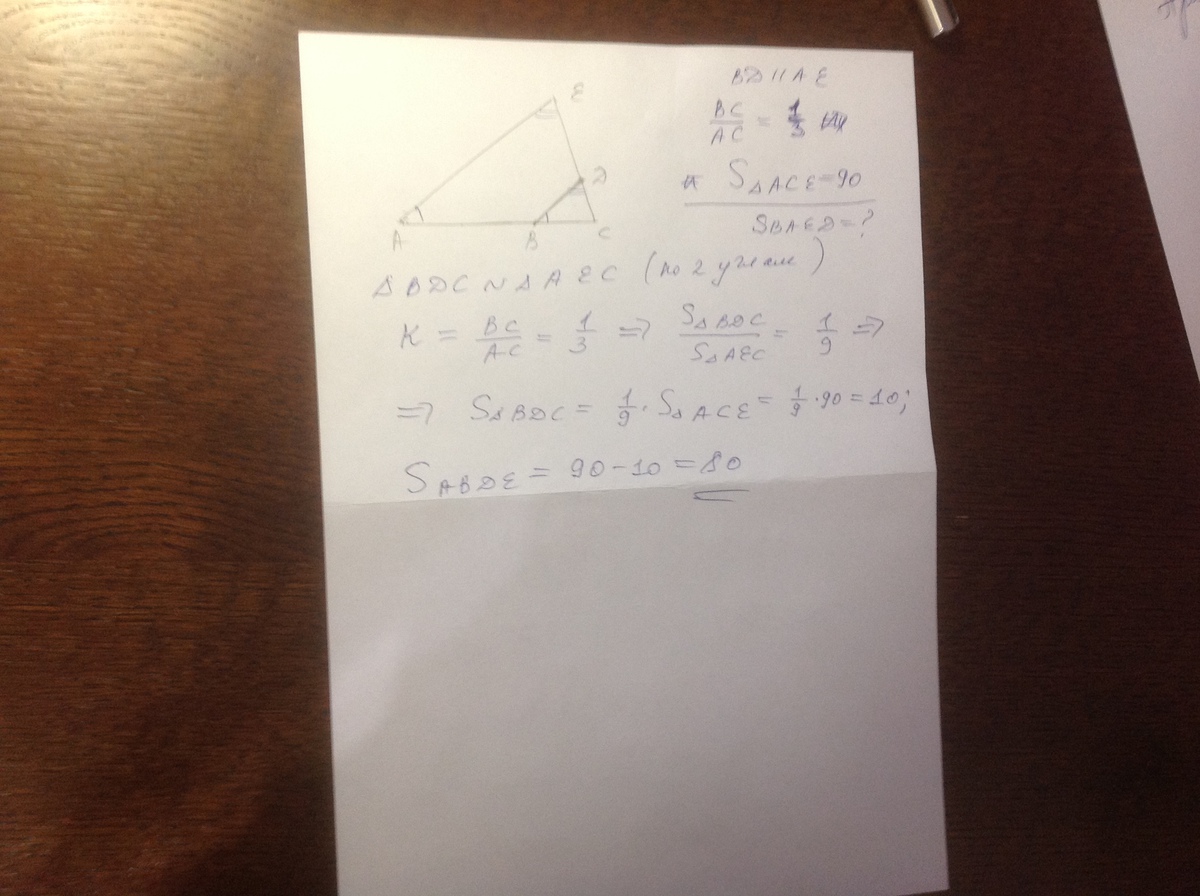 E
D
A B C
BD || AE
BC/AC = 1/3
S△ACE = 90
SBAED = ?
△BDC ~ △AEC (по 2 углам)
K = BC/AC = 1/3 => S△BDC/S△AEC = 1/9 =>
=> S△BDC = 1/9 · S△ACE = 1/9 · 90 = 10;
SABDE = 90 - 10 = 80